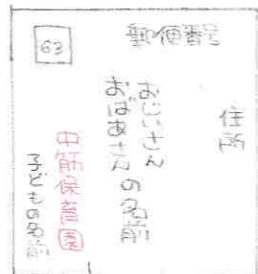 63
郵便番号
住所
おじいさん
おばあさんの名前
中筋保育園
子どもの名前